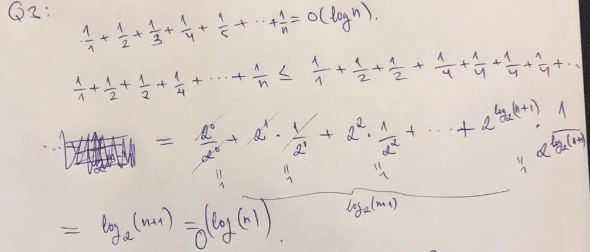 Q2:
1/1 + 1/2 + 1/3 + 1/4 + 1/5 + ... + 1/n = O(log n).
1/1 + 1/2 + 1/2 + 1/4 + ... + 1/n ≤ 1/1 + 1/2 + 1/2 + 1/4 + 1/4 + 1/4 + 1/4 + ...
= 2^0/2^0 + 2^1 · 1/2^1 + 2^2 · 1/2^2 + ... + 2^log_2(n+1) · 1/2^log_2(n+1)
= 1 = 1 = 1 = 1
log_2(n+1)
= log_2(n+1) = O(log(n)).